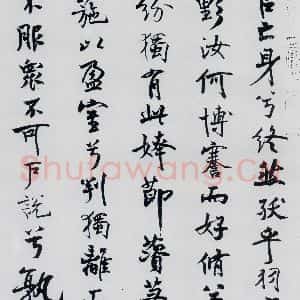 亡身兮終然殀乎羽
野汝何博謇而好脩兮
紛獨有此姱節薋菉
葹以盈室兮判獨離
不服眾不可戶說兮孰
Shufawang.Cn